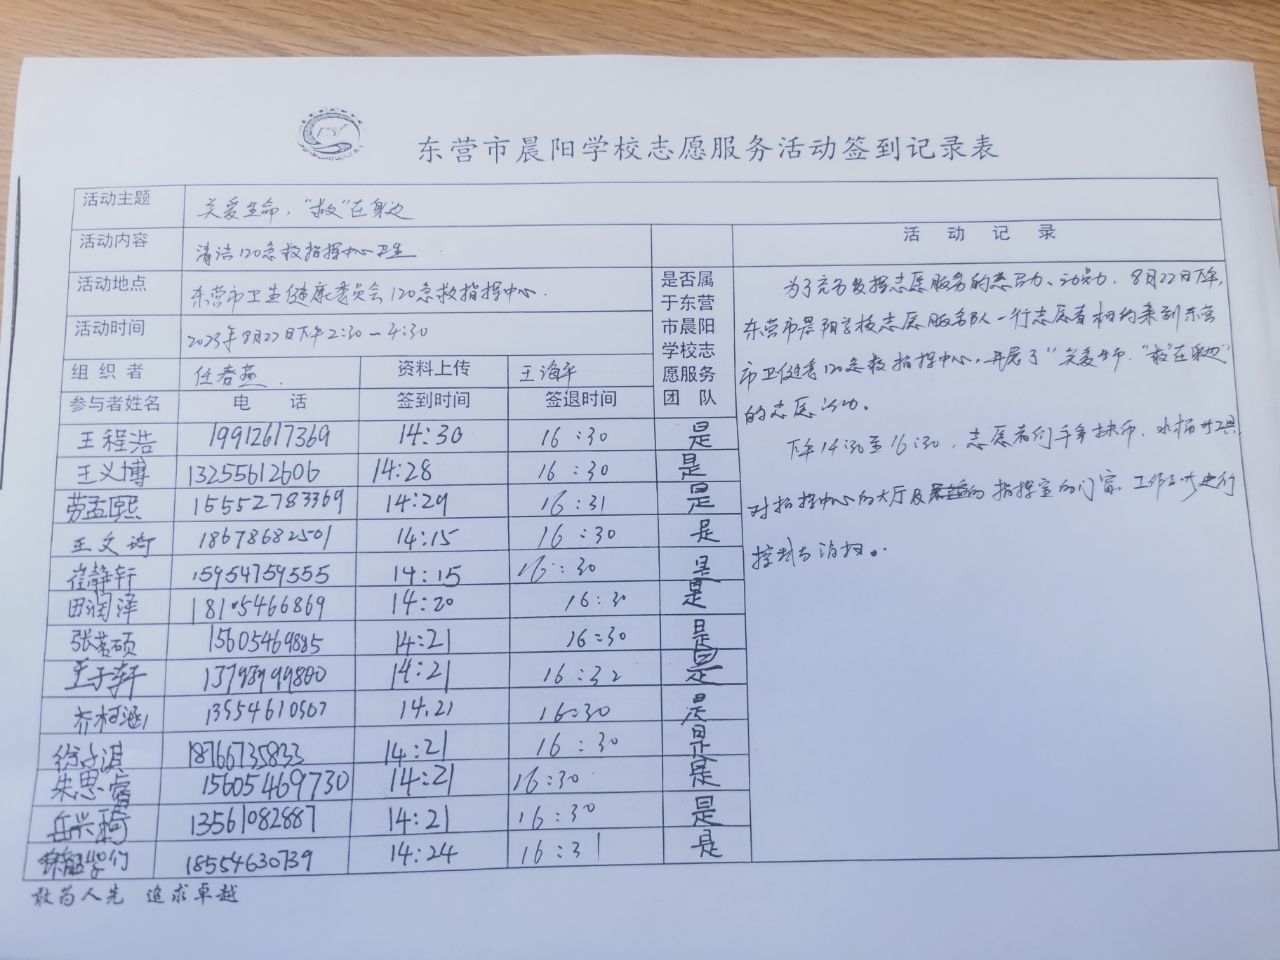 东营市晨阳学校志愿服务活动签到记录表
活动主题 关爱生命，“救”在身边
活动内容 清洁120急救指挥中心卫生
活动地点 东营市卫生健康委员会120急救指挥中心.
活动时间 2023年8月22日下午2:30—4:30
组织者 任春燕. 资料上传 王海平
是否属于东营市晨阳学校志愿服务团队
参与者姓名 电话 签到时间 签退时间
王程浩 19912617369 14:30 16:30 是
王义博 13255612606 14:28 16:30 是
劳孟熙 15552783369 14:29 16:31 是
王文琦 18678682501 14:15 16:30 是
崔静轩 15954759555 14:15 16:30 是
田润泽 18105466869 14:20 16:30 是
张茗硕 15605469885 14:21 16:30 是
王子轩 14:21 16:32 是
齐柯涵 13554610507 14.21 16:30 是
徐子淇 18766735833 14:21 16:30 是
朱思睿 15605469730 14:21 16:30 是
岳兴琦 13561082887 14:21 16:30 是
18554630739 14:24 16:31 是
活动记录
为了充分发挥志愿服务的 力、 力，8月22日下午，
东营市晨阳学校志愿服务队一行志愿者相约来到东营
市卫健委120急救指挥中心，开展了“关爱生命，“救”在身边”
的志愿活动。
下午14:30至16:30，志愿者们手拿抹布、水桶 工具
对指挥中心的大厅及 指挥室的门窗、工作 进行
与消扫。
敢为人先 追求卓越